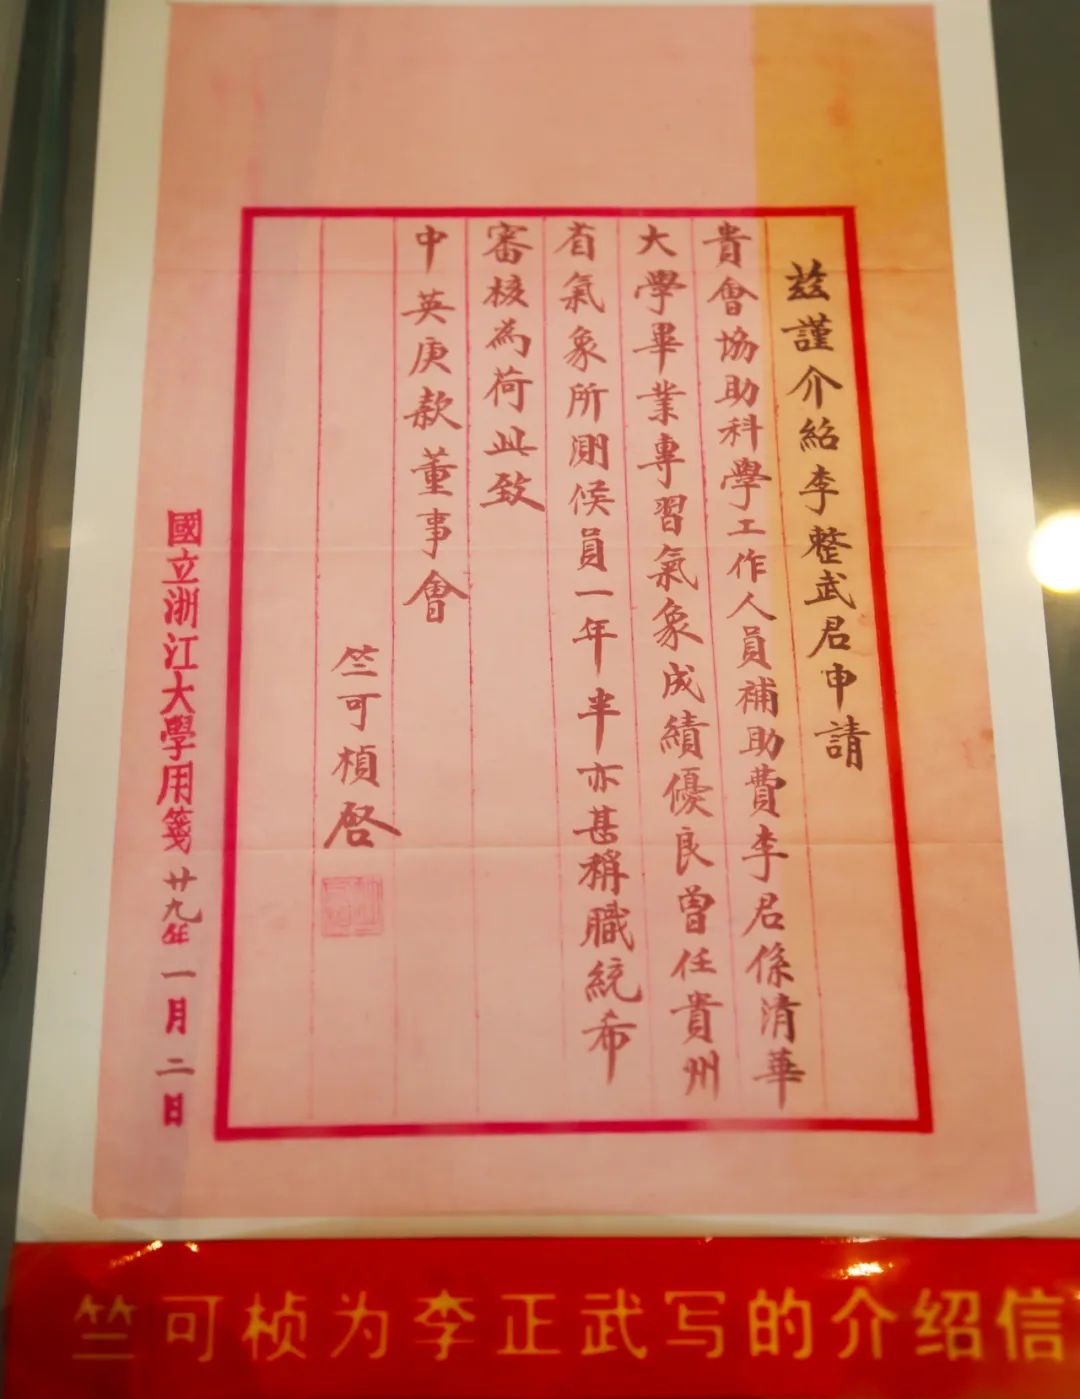 茲謹介紹李整武君申請
貴會協助科學工作人員補助費李君係清華
大學畢業專習氣象成績優良曾任貴州
省氣象所測候員一年半亦甚稱職統希
審核為荷此致
中英庚款董事會
竺可楨啓
國立浙江大學用箋廿九年一月二日
竺可桢为李正武写的介绍信